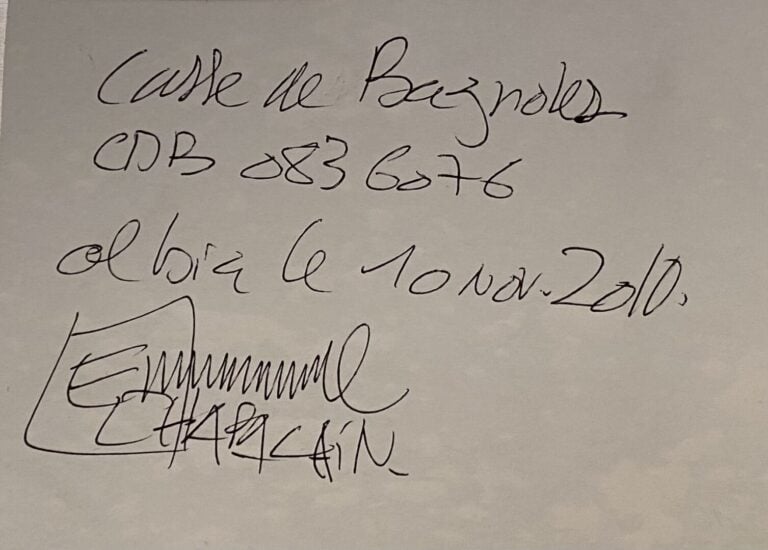 Casse de Bagnoles
CDB 0836076
olbia le 10 Nov. 2010.
Emmanuel
CHAPALAIN